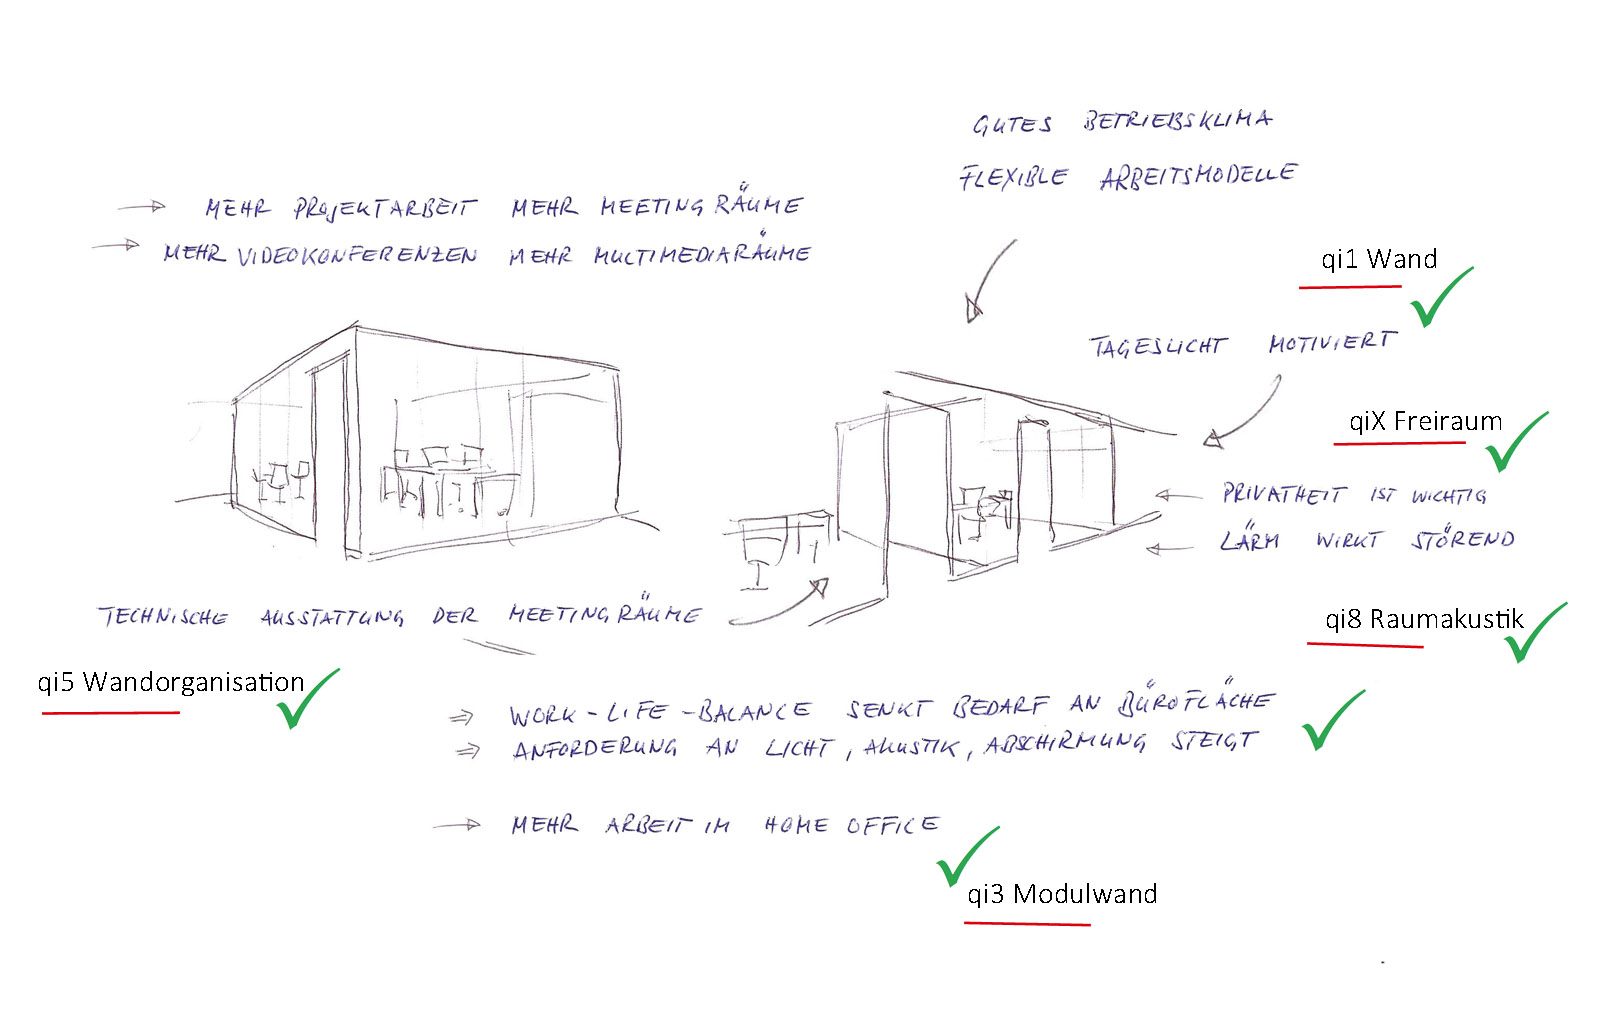 GUTES BETRIEBSKLIMA
FLEXIBLE ARBEITSMODELLE
→ MEHR PROJEKTARBEIT MEHR MEETINGRÄUME
→ MEHR VIDEOKONFERENZEN MEHR MULTIMEDIARÄUME
qi1 Wand
TAGESLICHT MOTIVIERT
qiX Freiraum
← PRIVATHEIT IST WICHTIG
← LÄRM WIRKT STÖREND
TECHNISCHE AUSSTATTUNG DER MEETINGRÄUME
qi8 Raumakustik
qi5 Wandorganisation
⇒ WORK-LIFE-BALANCE SENKT BEDARF AN BÜROFLÄCHE
⇒ ANFORDERUNG AN LICHT, AKUSTIK, ABSCHIRMUNG STEIGT
→ MEHR ARBEIT IM HOME OFFICE
qi3 Modulwand